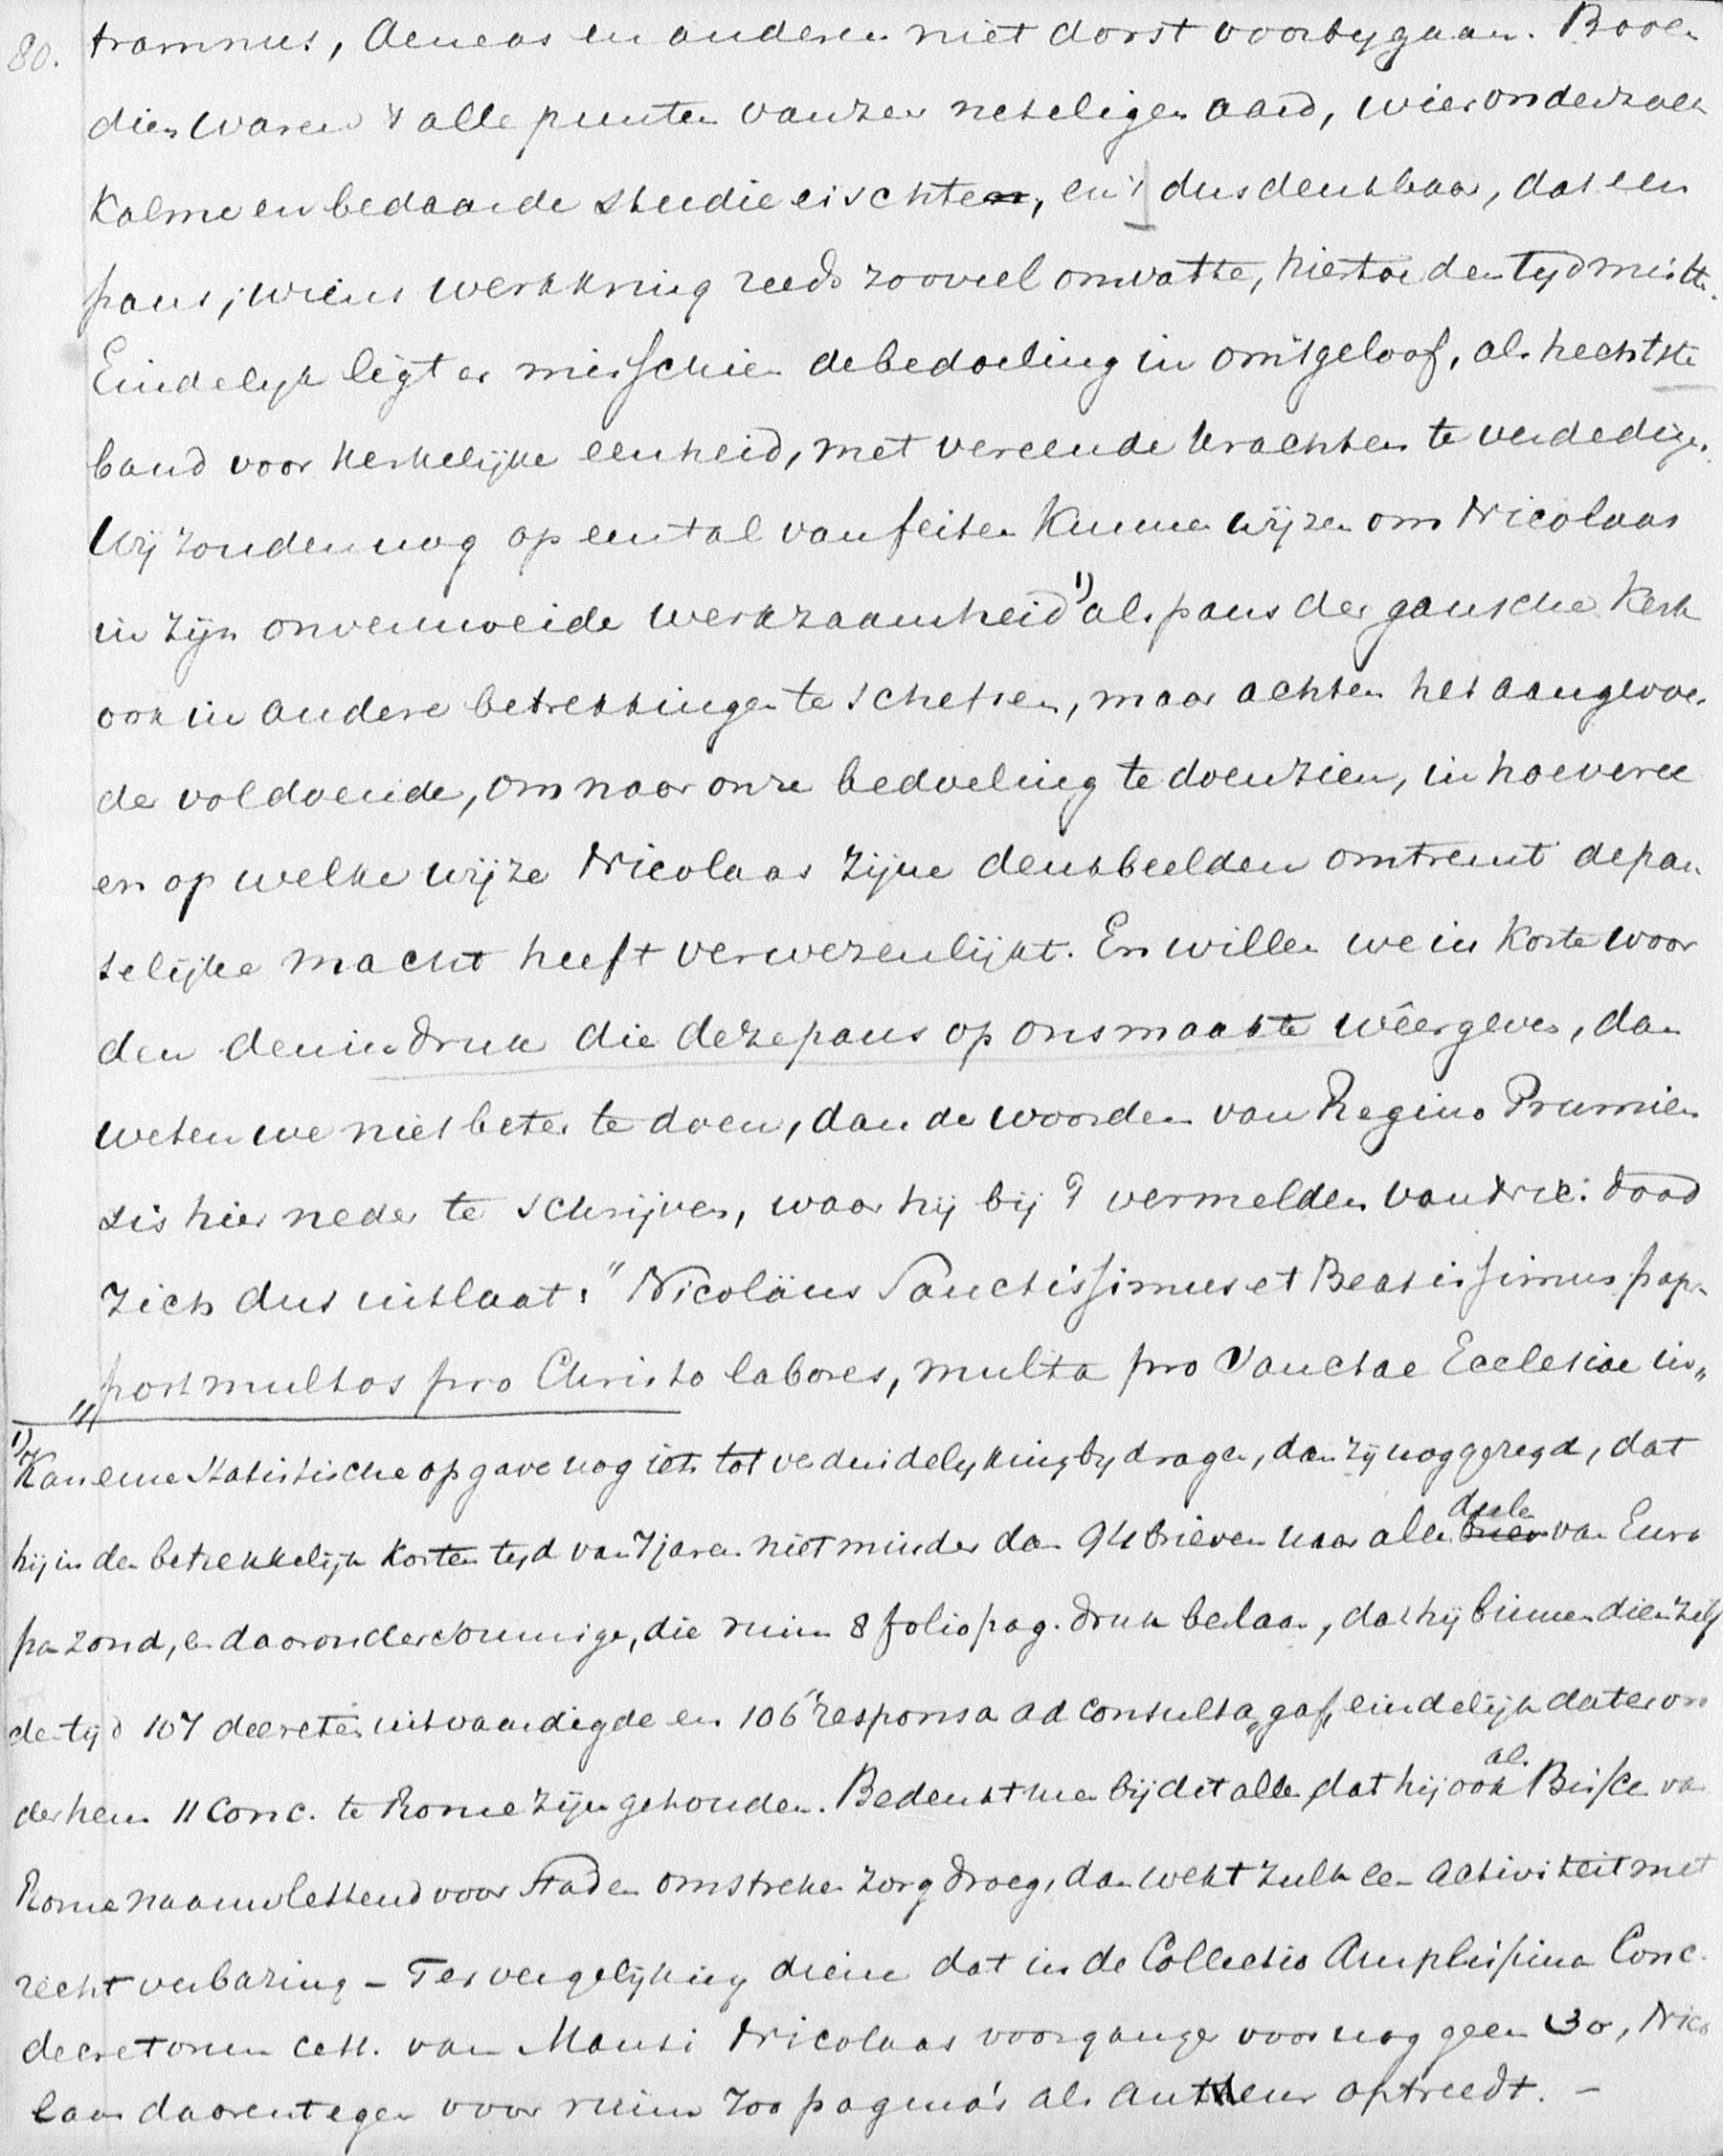 80.
tramnus, Aeneas en anderen niet dorst voorbygaan. Boven
dien waren 't alle punten van zeer neteligen aard, wier onderzoek
kalme en bedaarde studie eischten, en 't dus denkbaar, dat een
paus, wiens werkkring reeds zooveel omvatte, hiertoe den tyd miste.
Eindelyk ligt er misschien de bedoeling in om 't geloof, als hechtste
band voor kerkelijke eenheid, met vereende krachten te verdedigen.
Wij zouden nog op een tal van feiten kunnen wijzen om Nicolaas
in zijn onvermoeide werkzaamheid 1) als paus der gansche Kerk
ook in andere betrekkingen te schetsen, maar achten het aangevoer
de voldoende, om naar onze bedoeling te doen zien, in hoeverre
en op welke wijze Nicolaas zijne denkbeelden omtrent de pau
selijke macht heeft verwezenlijkt. En willen we in korte woor
den den indruk die deze paus op ons maakte wêergeven, dan
weten we niet beter te doen, dan de woorden van Regino Prumien
sis hier neder te schrijven, waar hij bij 't vermelden van Nic: dood
zich dus uitlaat: " Nicoläus Sanctissimus et Beatissimus papa
„ post multos pro Christo labores, multa pro Sanctae Ecclesiae in„
1) Kan eene statistische opgave nog iets tot verduidelykingbydragen, dan zij nog gezegd, dat
hij in den betrekkelijk korten tyd van 7 jaren niet minder dan 94 brieven naar alle deelen van Euro
pa zond, en daaronder sommige, die ruim 8 foliopag. druk beslaan, dat hij binnen dien zelf
den tijd 107 decreten uitvaardigde en 106 "responsa ad consulta„ gaf, eindelijk dat er on
der hem 11 Conc. te Rome zijn gehouden. Bedenkt men bij dit alles, dat hij ook als Bissch. van
Rome naauwlettend voor Stad en omstreken zorg droeg, dan wekt zulk een activiteit met
recht verbazing – Ter vergelijking diene dat in de Collectio Amplissima Conc.
decretorum cett. van Mansi Nicolaas voorganger voor nog geen 30, Nico
laas daarentegen voor ruim 700 pagina's als autheur optreedt. –